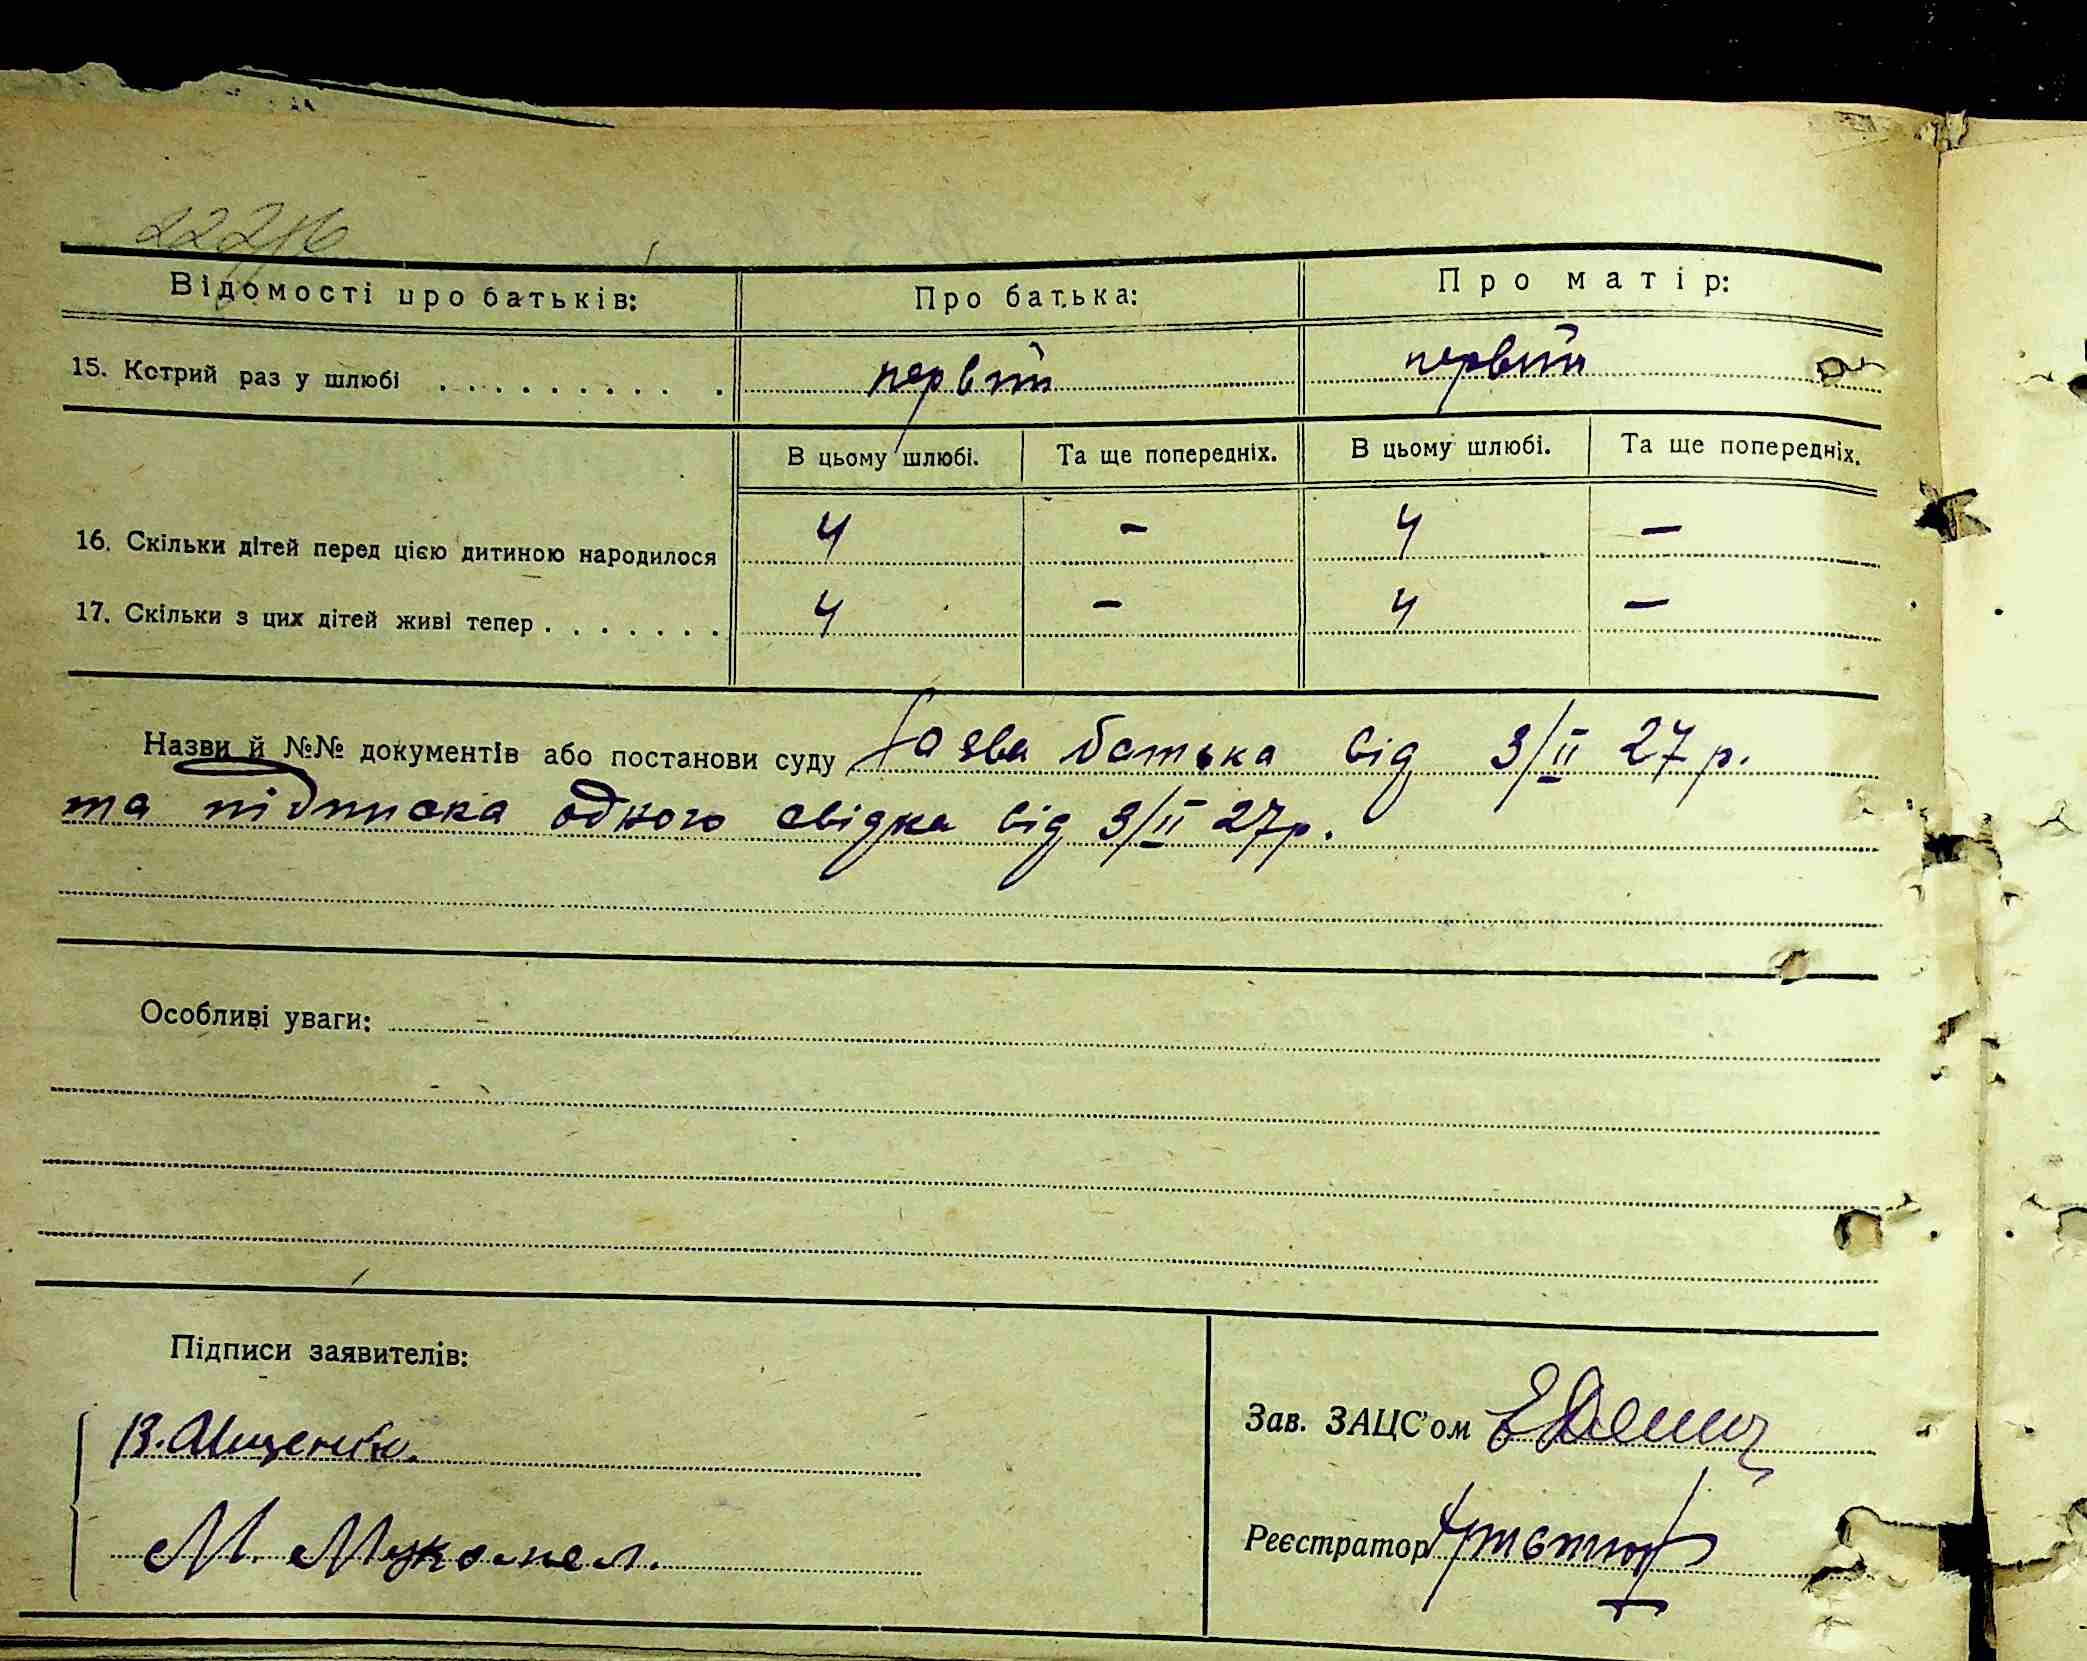 Відомості про батьків: Про батька: Про матір:
15. Котрий раз у шлюбі . . . . . . . . . . . первий первий
В цьому шлюбі. Та ще попередніх. В цьому шлюбі. Та ще попередніх.
16. Скільки дітей перед цією дитиною народилося 4 – 4 –
17. Скільки з цих дітей живі тепер . . . . . . . 4 – 4 –
Назви й №№ документів або постанови суду Заява батька від 3/II 27 р.
та підписка одного свідка від 3/II 27 р.
Особливі уваги:
Підписи заявителів:
В. Мищенко.
Зав. ЗАЦС'ом
М.
Реєстратор